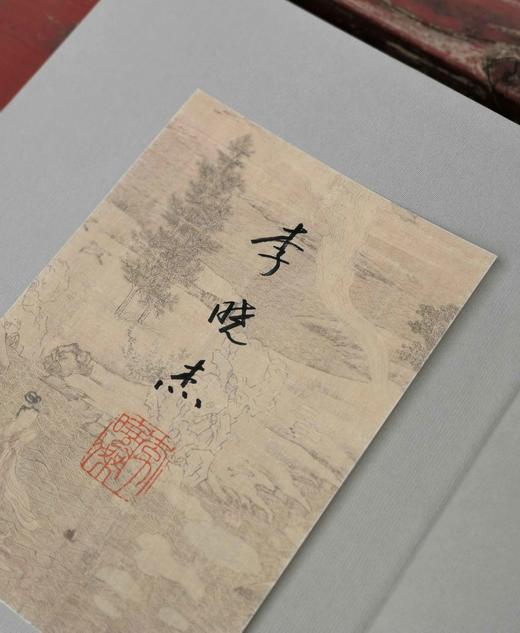 李晓杰